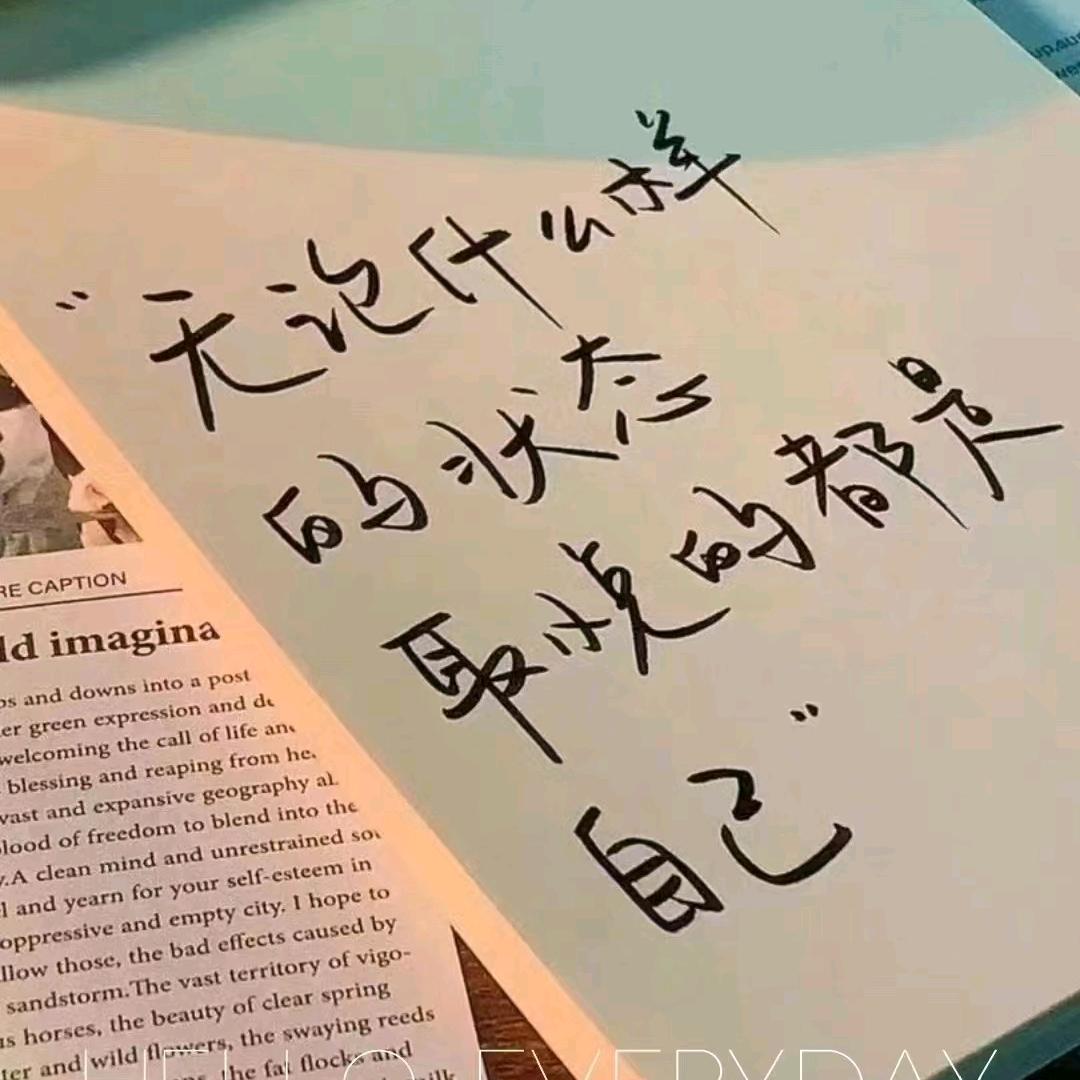 "无论什么样
的状态
取悦的都是
自己"
RE CAPTION
ld imagina
ps and downs into a post
er green expression and de
welcoming the call of life and
blessing and reaping from he
vast and expansive geography al
blood of freedom to blend into the
y.A clean mind and unrestrained sou
l and yearn for your self-esteem in
oppressive and empty city. I hope to
llow those, the bad effects caused by
sandstorm.The vast territory of vigo-
us horses, the beauty of clear spring
ter and wild flowers, the swaying reeds
the fat flocks and
HELLO EVERYDAY